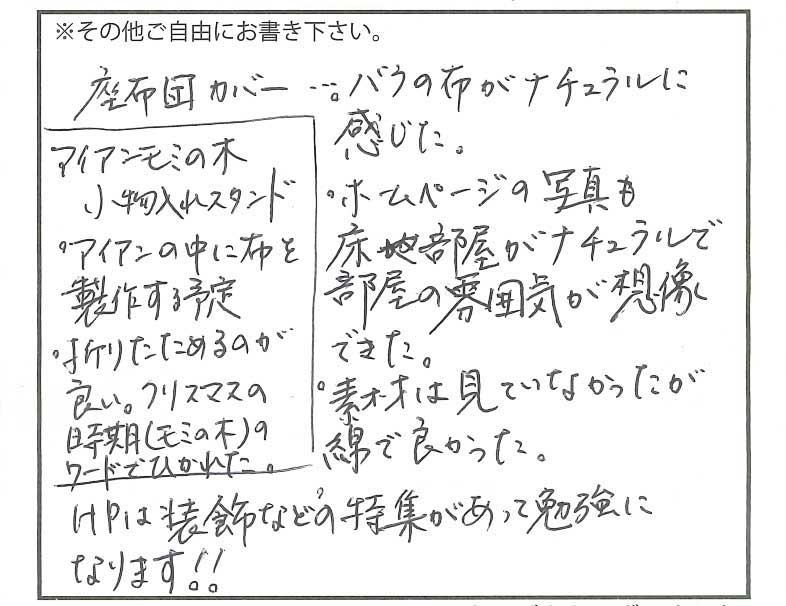 ※その他ご自由にお書き下さい。
座布団カバー…。バラの布がナチュラルに
感じた。
・ホームページの写真も
床や部屋がナチュラルで
部屋の雰囲気が想像
できた。
・素材は見ていなかったが
綿で良かった。
アイアンモミの木
小物入れスタンド
・アイアンの中に布を
製作する予定
・折りたためるのが
良い。クリスマスの
時期(モミの木)の
ワードでひかれた。
HPは装飾などの特集があって勉強に
なります!!